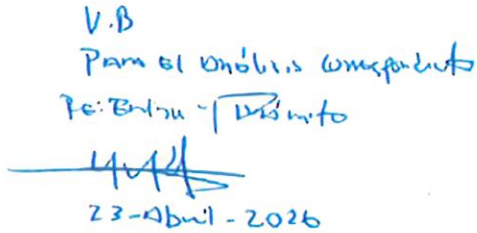 V.B
Para el análisis correspondiente
Re: Entra y Tránsito
23-Abril-2026